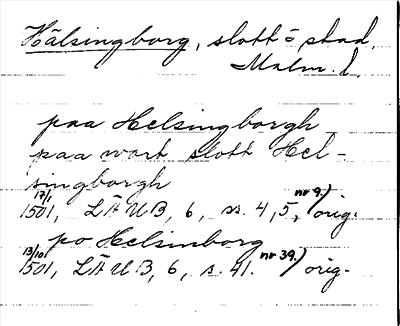 Hälsingborg, slott o stad,
Malm. l.
paa Helsingborgh
paa wort slott Hel-
singborgh
17/1 1501, LÄUB, 6, ss. 4, 5, nr 9.) orig.
po Helsimborg
13/10 1501, LÄUB, 6, s. 41. nr 39.) orig.